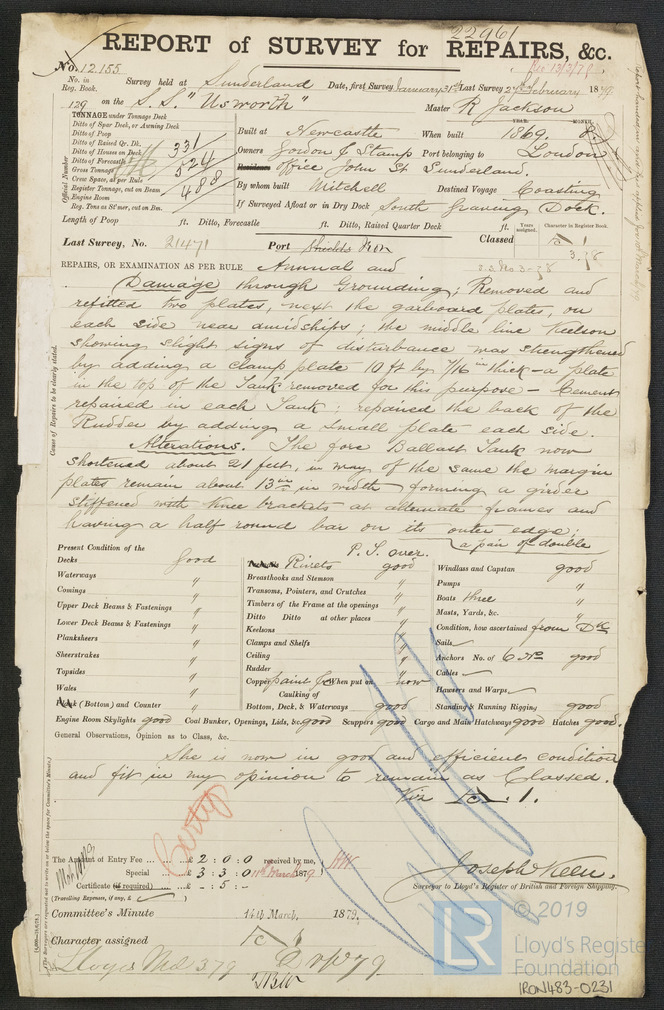 22961
REPORT of SURVEY for REPAIRS, &c.
No. 12.155
Rec 13/3/79
No. in Reg. Book. Survey held at Sunderland Date, first Survey January 31st Last Survey 27th February 1879
129 on the S.S. "Usworth" Master R Jackson
TONNAGE under Tonnage Deck
Ditto of Spar Deck, or Awning Deck
Ditto of Poop
Ditto of Raised Qr. Dk. 331
Ditto of Houses on Deck
Ditto of Forecastle
Gross Tonnage 524
Crew Space, as per Rule
Register Tonnage, cut on Beam 488
Engine Room
Reg. Tons as St'mer, cut on Bm.
Official Number
Built at Newcastle When built YEAR. 1869. MONTH. 8
Owners Gordon & Stamp Port belonging to London
Residence office John St Sunderland.
By whom built Mitchell Destined Voyage Coasting
If Surveyed Afloat or in Dry Dock South Graving Dock.
Length of Poop ft. Ditto, Forecastle ft. Ditto, Raised Quarter Deck ft.
Years assigned. Character in Register Book.
Last Survey, No. 21471 Port Shields Classed
3.78
REPAIRS, OR EXAMINATION AS PER RULE Annual and
S.S. No 3-78
Damage through Grounding; Removed and
refitted two plates, next the garboard plates, on
each side near amidships; the middle line keelson
showing slight signs of disturbance was strengthened
by adding a clamp plate 10 ft by 7/16 in thick - a plate
in the top of the Tank removed for this purpose - Cement
repaired in each Tank: repaired the back of the
Rudder by adding a small plate each side.
Alterations. The fore Ballast Tank now
shortened about 21 feet, in way of the same the margin
plates remain about 13 ins in width forming a girder
stiffened with knee brackets at alternate frames and
having a half round bar on its outer edge;
P.T. over. a pair of double
Cause of Repairs to be clearly stated.
Present Condition of the
Decks good
Waterways "
Comings "
Upper Deck Beams & Fastenings "
Lower Deck Beams & Fastenings "
Planksheers "
Sheerstrakes "
Topsides "
Wales "
Plank (Bottom) and Counter "
Treenails Rivets good
Breasthooks and Stemson "
Transoms, Pointers, and Crutches "
Timbers of the Frame at the openings "
Ditto Ditto at other places "
Keelsons "
Clamps and Shelfs "
Ceiling "
Rudder "
Copper paint &c When put on now
Caulking of
Bottom, Deck, & Waterways good
Windlass and Capstan good
Pumps "
Boats three
Masts, Yards, &c. "
Condition, how ascertained from Dk
Sails
Anchors No. of 6 good
Cables
Hawsers and Warps
Standing & Running Rigging good
Engine Room Skylights good Coal Bunker, Openings, Lids, &c. good Scuppers good Cargo and Main Hatchways good Hatches good.
General Observations, Opinion as to Class, &c.
She is now in good and efficient condition
and fit in my opinion to remain as Classed.
Viz
Certif
The Amount of Entry Fee ... £ 2 : 0 : 0 received by me,
Special ... £ 3 : 3 : 0 11th March 1879
Certificate (if required) ... £ - : 5 : -
(Travelling Expenses, if any, £ )
Joseph Keen.
Surveyor to Lloyd's Register of British and Foreign Shipping.
Committee's Minute 14th March, 1879.
Character assigned
Lloyds Md 379
LR
© 2019
Lloyd's Register
Foundation
IRON483-0231